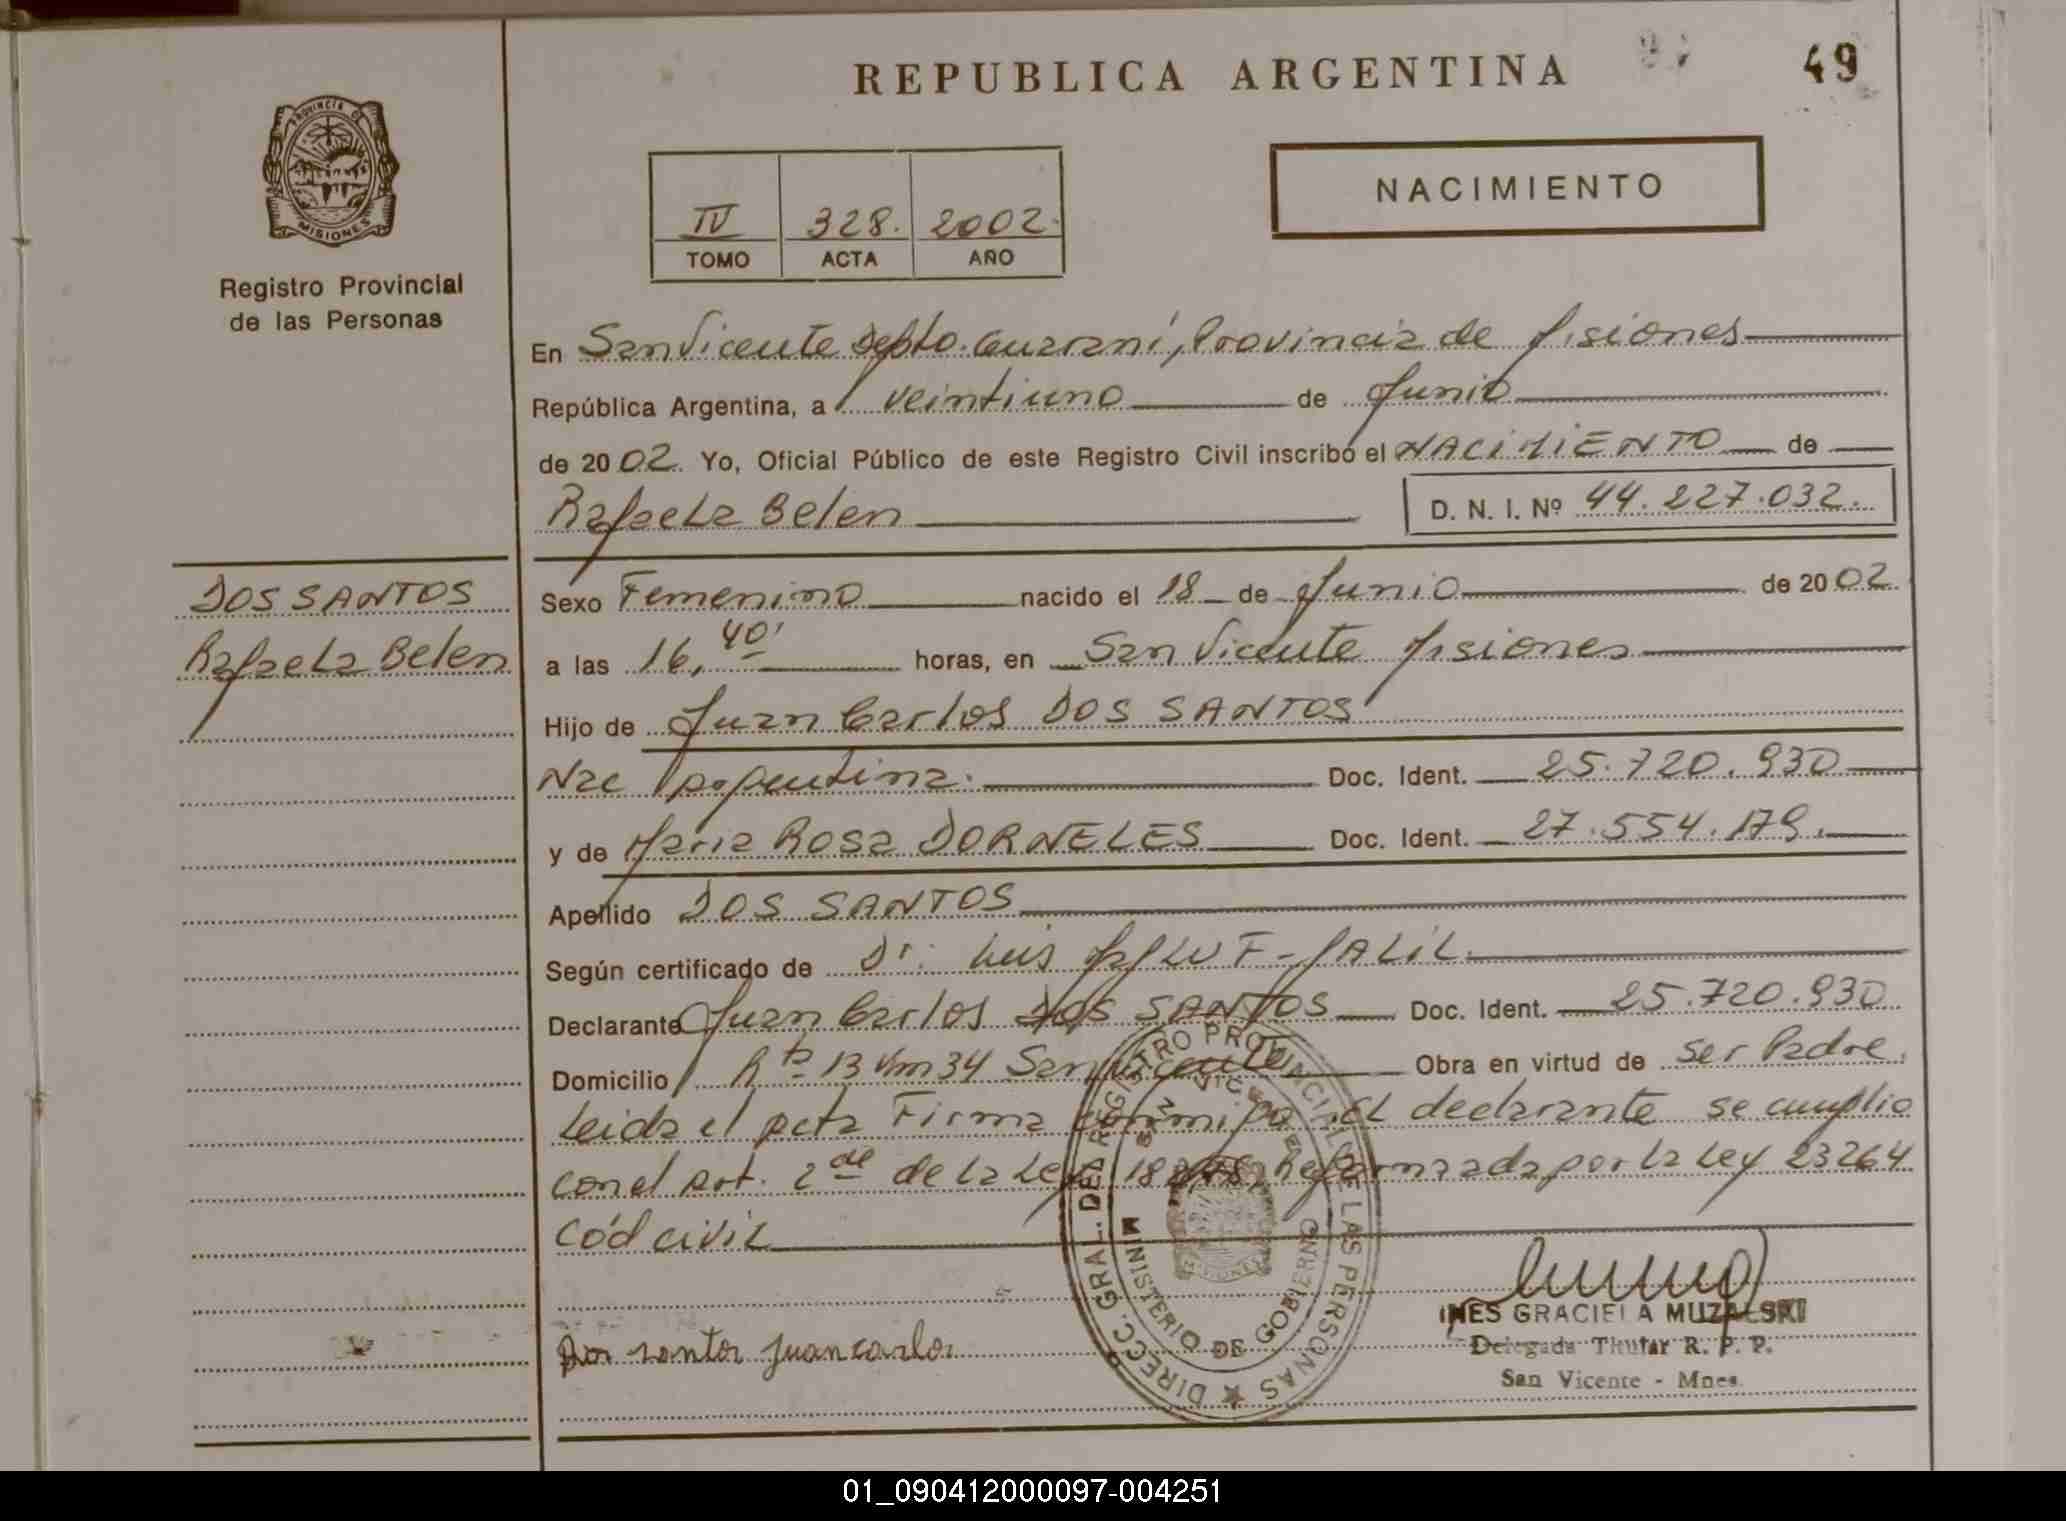 REPUBLICA ARGENTINA
49
PROVINCIA DE
MISIONES
Registro Provincial
de las Personas
IV 328. 2002.
TOMO ACTA AÑO
NACIMIENTO
En San Vicente Depto. Guarani, Provincia de Misiones
República Argentina, a veintiuno de Junio
de 2002. Yo, Oficial Público de este Registro Civil inscribo el NACIMIENTO de
Rafaela Belen
D. N. I. Nº 44.227.032.
DOS SANTOS
Rafaela Belen
Sexo Femenino nacido el 18 de Junio de 2002.
a las 16,40' horas, en San Vicente Misiones
Hijo de Juan Carlos DOS SANTOS
Nac Argentina. Doc. Ident. 25.720.930
y de Maria Rosa DORNELES Doc. Ident. 27.554.179.
Apellido DOS SANTOS
Según certificado de Dr. Luis JALIL.
Declarante Juan Carlos DOS SANTOS Doc. Ident. 25.720.930
Domicilio Rta 13 Km 34 San Vicente Obra en virtud de ser Padre.
Leida el acta Firma conmigo el declarante se cumplio
con el art. 2 de de la Ley 18248, Reformada por la Ley 23264
Cód civil
Dos santos juan carlos
DIREC. GRAL. DEL REGISTRO PROVINCIAL DE LAS PERSONAS
SAN VICENTE
MISIONES
MINISTERIO DE GOBIERNO
INES GRACIELA MUZALSKI
Delegada Titular R. P. P.
San Vicente - Mnes.
01_090412000097-004251